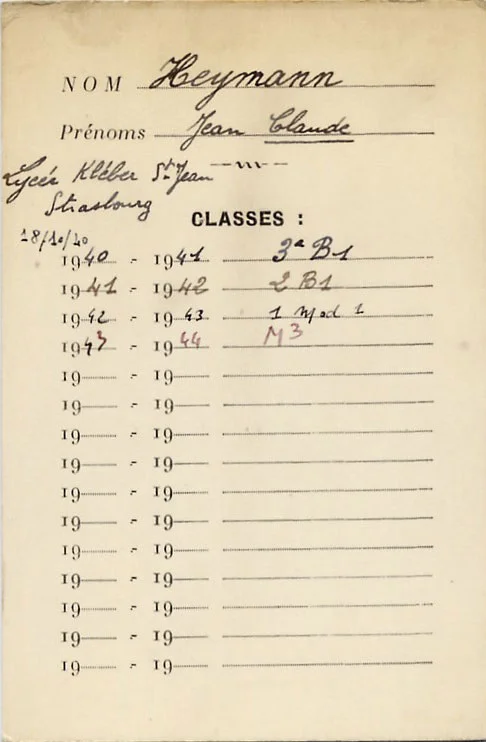 NOM Heymann
Prénoms Jean Claude
Lycée Kléber St Jean
Strasbourg
CLASSES :
18/10/40
1940 - 1941 3e B1
1941 - 1942 2 B1
1942 - 1943 1 Mod 1
1943 - 1944 M3
19 - 19
19 - 19
19 - 19
19 - 19
19 - 19
19 - 19
19 - 19
19 - 19
19 - 19
19 - 19
19 - 19